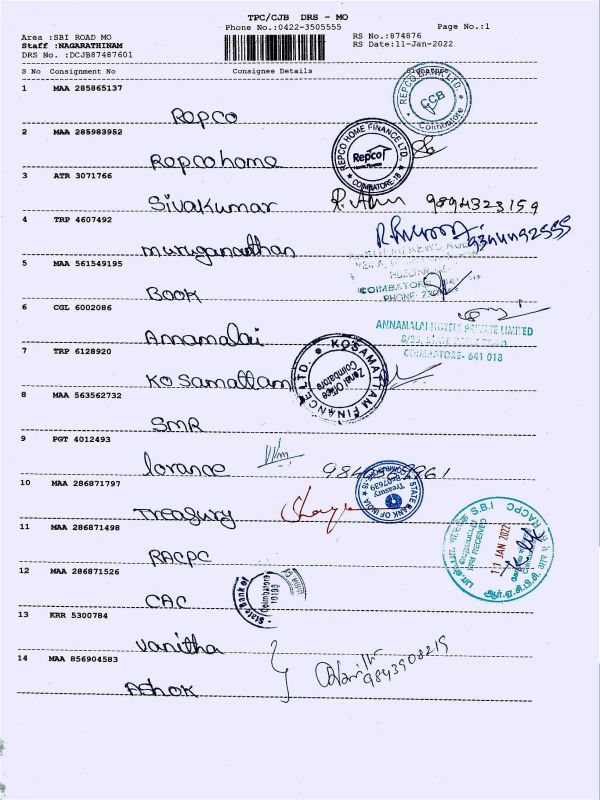 TPC/CJB DRS - MO
Phone No.:0422-3505555
Page No.:1
Area :SBI ROAD MO
RS No.:874876
Staff :NAGARATHINAM
RS Date:11-Jan-2022
DRS No. :DCJB87487601
S No Consignment No Consignee Details Signature
1 MAA 285865137
Repco
REPCO BANK LTD. CCB Coimbatore
2 MAA 285983952
Repco home
REPCO HOME FINANCE LTD. Repco COIMBATORE-18
3 ATR 3071766
Sivakumar 9894323159
4 TRP 4607492
muruganathan
5 MAA 561549195
COIMBATORE
PHONE:
BOOK
6 CGL 6002086
Annamalai
ANNAMALAI HOTELS PRIVATE LIMITED
COIMBATORE- 641 018
7 TRP 6128920
Kosamattam
KOSAMATTAM FINANCE LTD. Zonal Office Coimbatore
8 MAA 563562732
SMR
9 PGT 4012493
lorance
10 MAA 286871797
Treasury
STATE BANK OF INDIA Treasury
11 MAA 286871498
RACPC
S.B.I RACPC
11 JAN 2022
12 MAA 286871526
CAC
State Bank of Coimbatore
13 KRR 5300784
Vanitha
9843908219
14 MAA 856904583
Ashok